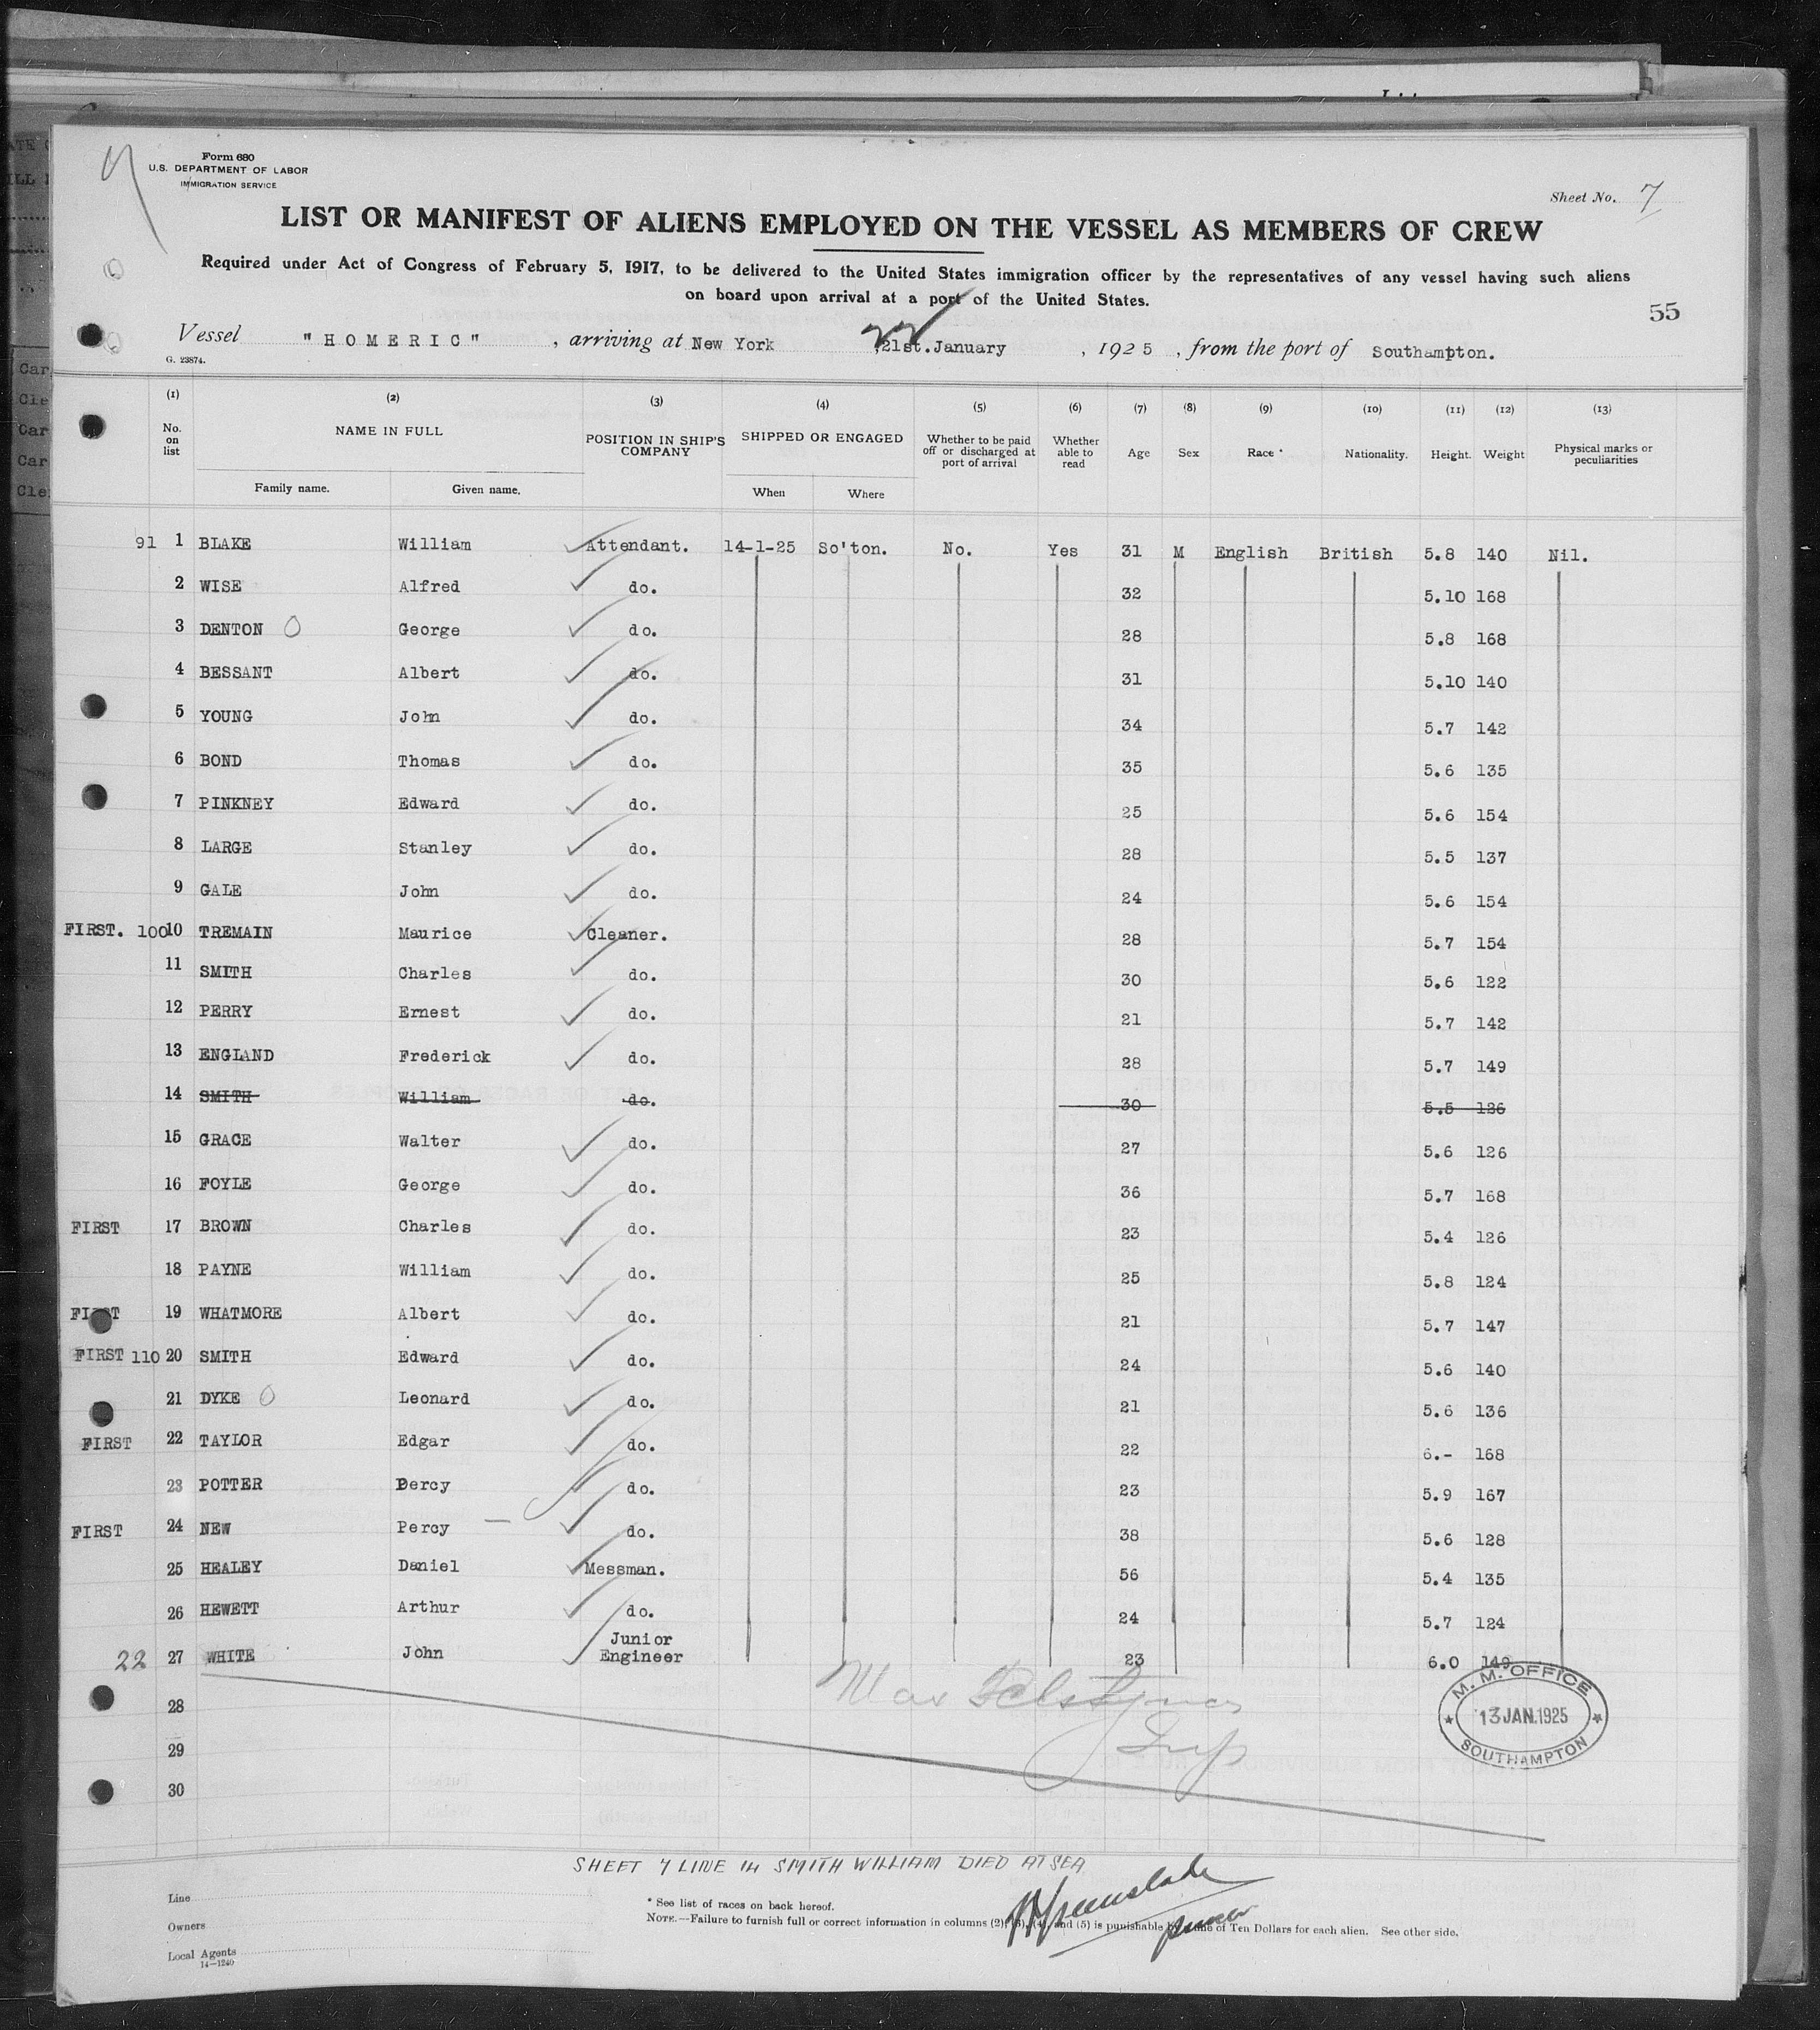 Form 680
U.S. DEPARTMENT OF LABOR
IMMIGRATION SERVICE
Sheet No. 7
LIST OR MANIFEST OF ALIENS EMPLOYED ON THE VESSEL AS MEMBERS OF CREW
Required under Act of Congress of February 5, 1917, to be delivered to the United States immigration officer by the representatives of any vessel having such aliens
on board upon arrival at a port of the United States.
55
Vessel "HOMERIC", arriving at New York, 22 21st. January, 1925, from the port of Southampton.
G. 23874.
(1) (2) (3) (4) (5) (6) (7) (8) (9) (10) (11) (12) (13)
No. on list NAME IN FULL POSITION IN SHIP'S COMPANY SHIPPED OR ENGAGED Whether to be paid off or discharged at port of arrival Whether able to read Age Sex Race * Nationality. Height. Weight Physical marks or peculiarities
Family name. Given name. When Where
91 1 BLAKE William Attendant. 14-1-25 So'ton. No. Yes 31 M English British 5.8 140 Nil.
2 WISE Alfred do. 32 5.10 168
3 DENTON George do. 28 5.8 168
4 BESSANT Albert do. 31 5.10 140
5 YOUNG John do. 34 5.7 142
6 BOND Thomas do. 35 5.6 135
7 PINKNEY Edward do. 25 5.6 154
8 LARGE Stanley do. 28 5.5 137
9 GALE John do. 24 5.6 154
FIRST. 100 10 TREMAIN Maurice Cleaner. 28 5.7 154
11 SMITH Charles do. 30 5.6 122
12 PERRY Ernest do. 21 5.7 142
13 ENGLAND Frederick do. 28 5.7 149
14 SMITH William do. 30 5.5 126
15 GRACE Walter do. 27 5.6 126
16 FOYLE George do. 36 5.7 168
FIRST 17 BROWN Charles do. 23 5.4 126
18 PAYNE William do. 25 5.8 124
FIRST 19 WHATMORE Albert do. 21 5.7 147
FIRST 110 20 SMITH Edward do. 24 5.6 140
21 DYKE Leonard do. 21 5.6 136
FIRST 22 TAYLOR Edgar do. 22 6.- 168
23 POTTER Percy do. 23 5.9 167
FIRST 24 NEW Percy do. 38 5.6 128
25 HEALEY Daniel Messman. 56 5.4 135
26 HEWETT Arthur do. 24 5.7 124
22 27 WHITE John Junior Engineer 23 6.0 149
28
29
30
Max
Insp
M. M. OFFICE
13 JAN. 1925
SOUTHAMPTON
SHEET 7 LINE 14 SMITH WILLIAM DIED AT SEA
Line
Owners
Local Agents
14—1240
* See list of races on back hereof.
NOTE.—Failure to furnish full or correct information in columns (2), (3), (4), and (5) is punishable by fine of Ten Dollars for each alien. See other side.
purser